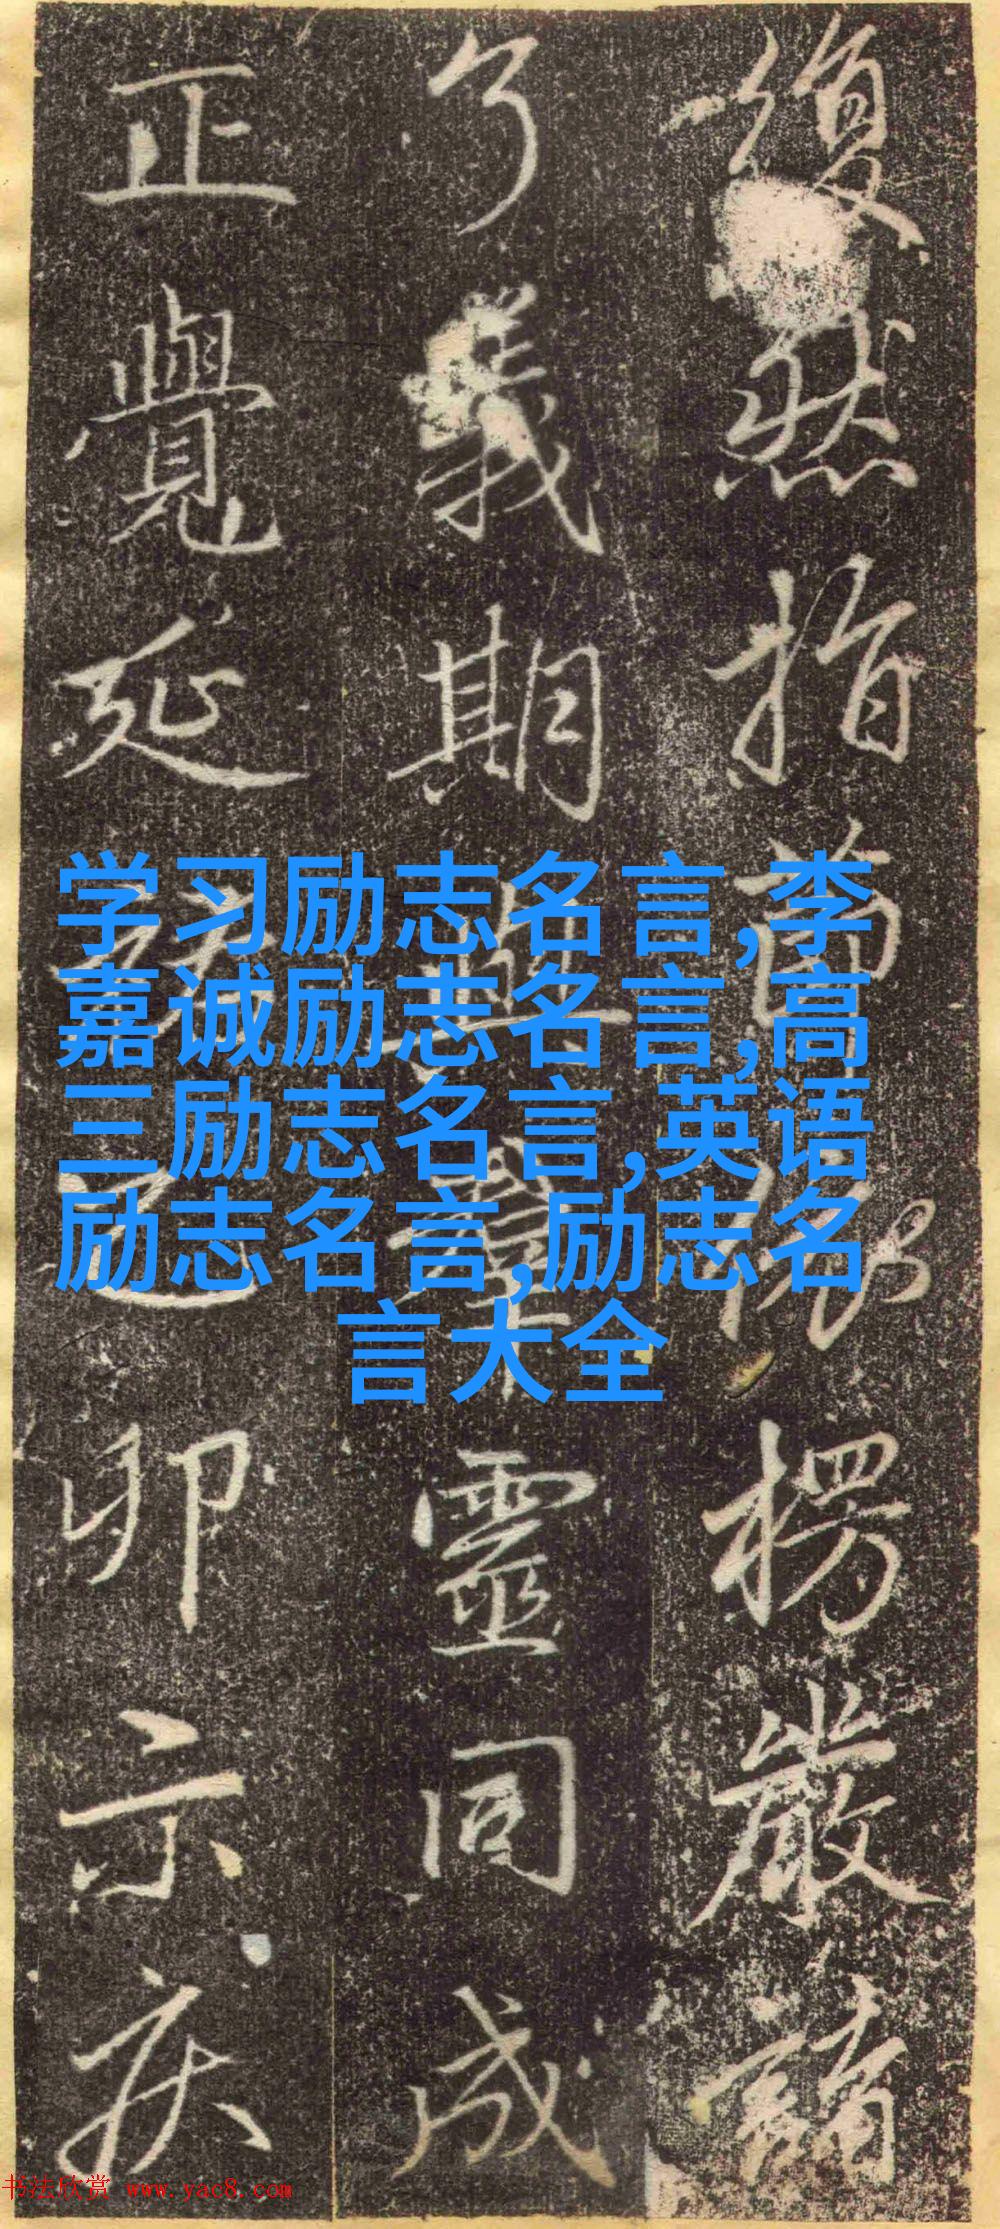 復然指苗
楞嚴
了義期
靈同成
正覺延
卯示疾
学习励志名言,李
嘉诚励志名言,高
三励志名言,英语
励志名言,励志名
言大全
书法欣赏 www.yac8.com